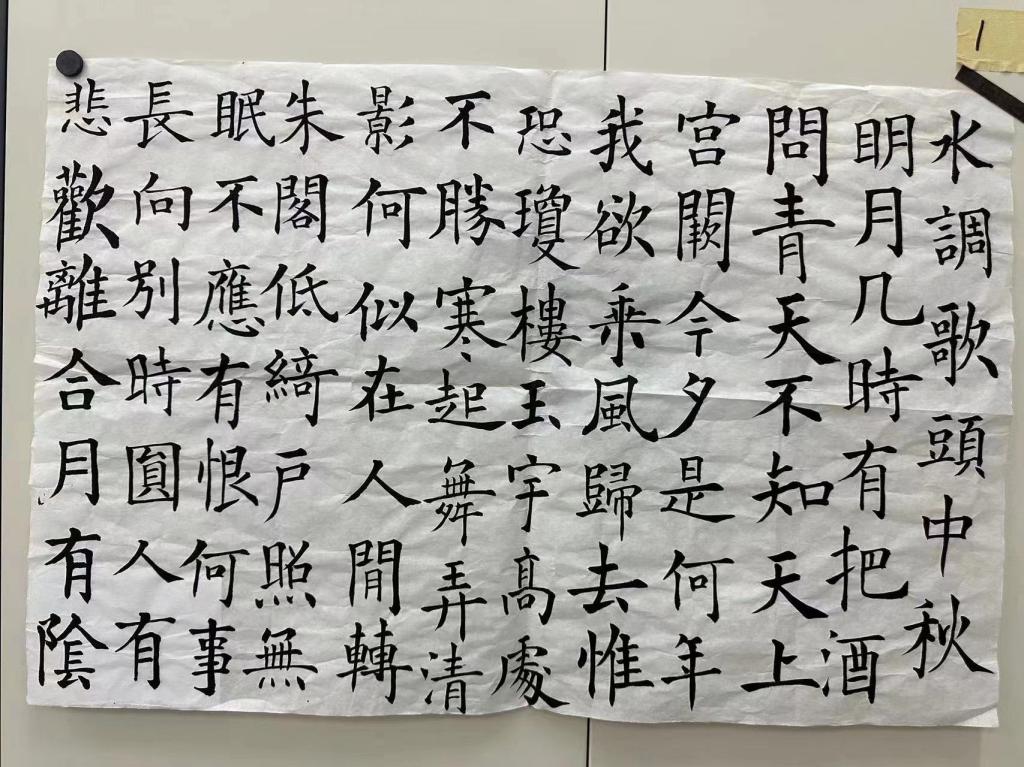 水調歌頭中秋
明月几時有把酒
問青天不知天上
宮闕今夕是何年
我欲乗風歸去惟
恐瓊樓玉宇髙處
不勝寒起舞弄清
影何似在人閒轉
朱閣低綺戶照無
眠不應有恨何事
長向別時圓人有
悲歡離合月有陰
1